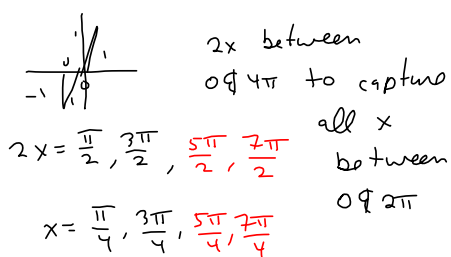 2x between
0 & 4π to capture
all x
between
0 & 2π
2x = π/2, 3π/2, 5π/2, 7π/2
x = π/4, 3π/4, 5π/4, 7π/4
-1
1
1
0